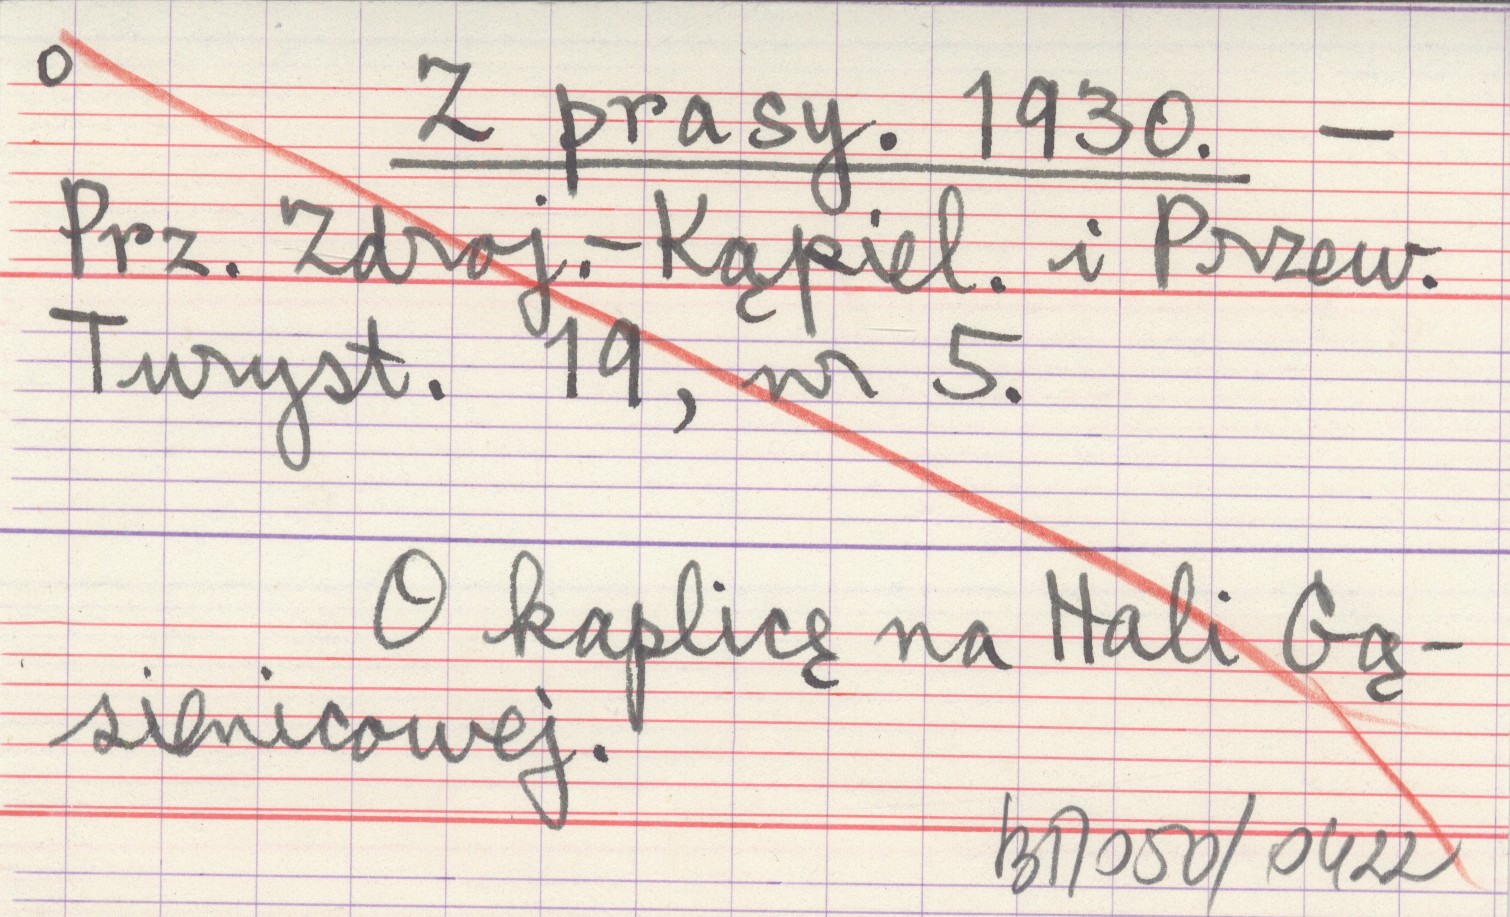 o
Z prasy. 1930. —
Prz. Zdroj.-Kąpiel. i Przew.
Turyst. 19, nr 5.
O kaplicę na Hali Gą-
sienicowej.
050/0422